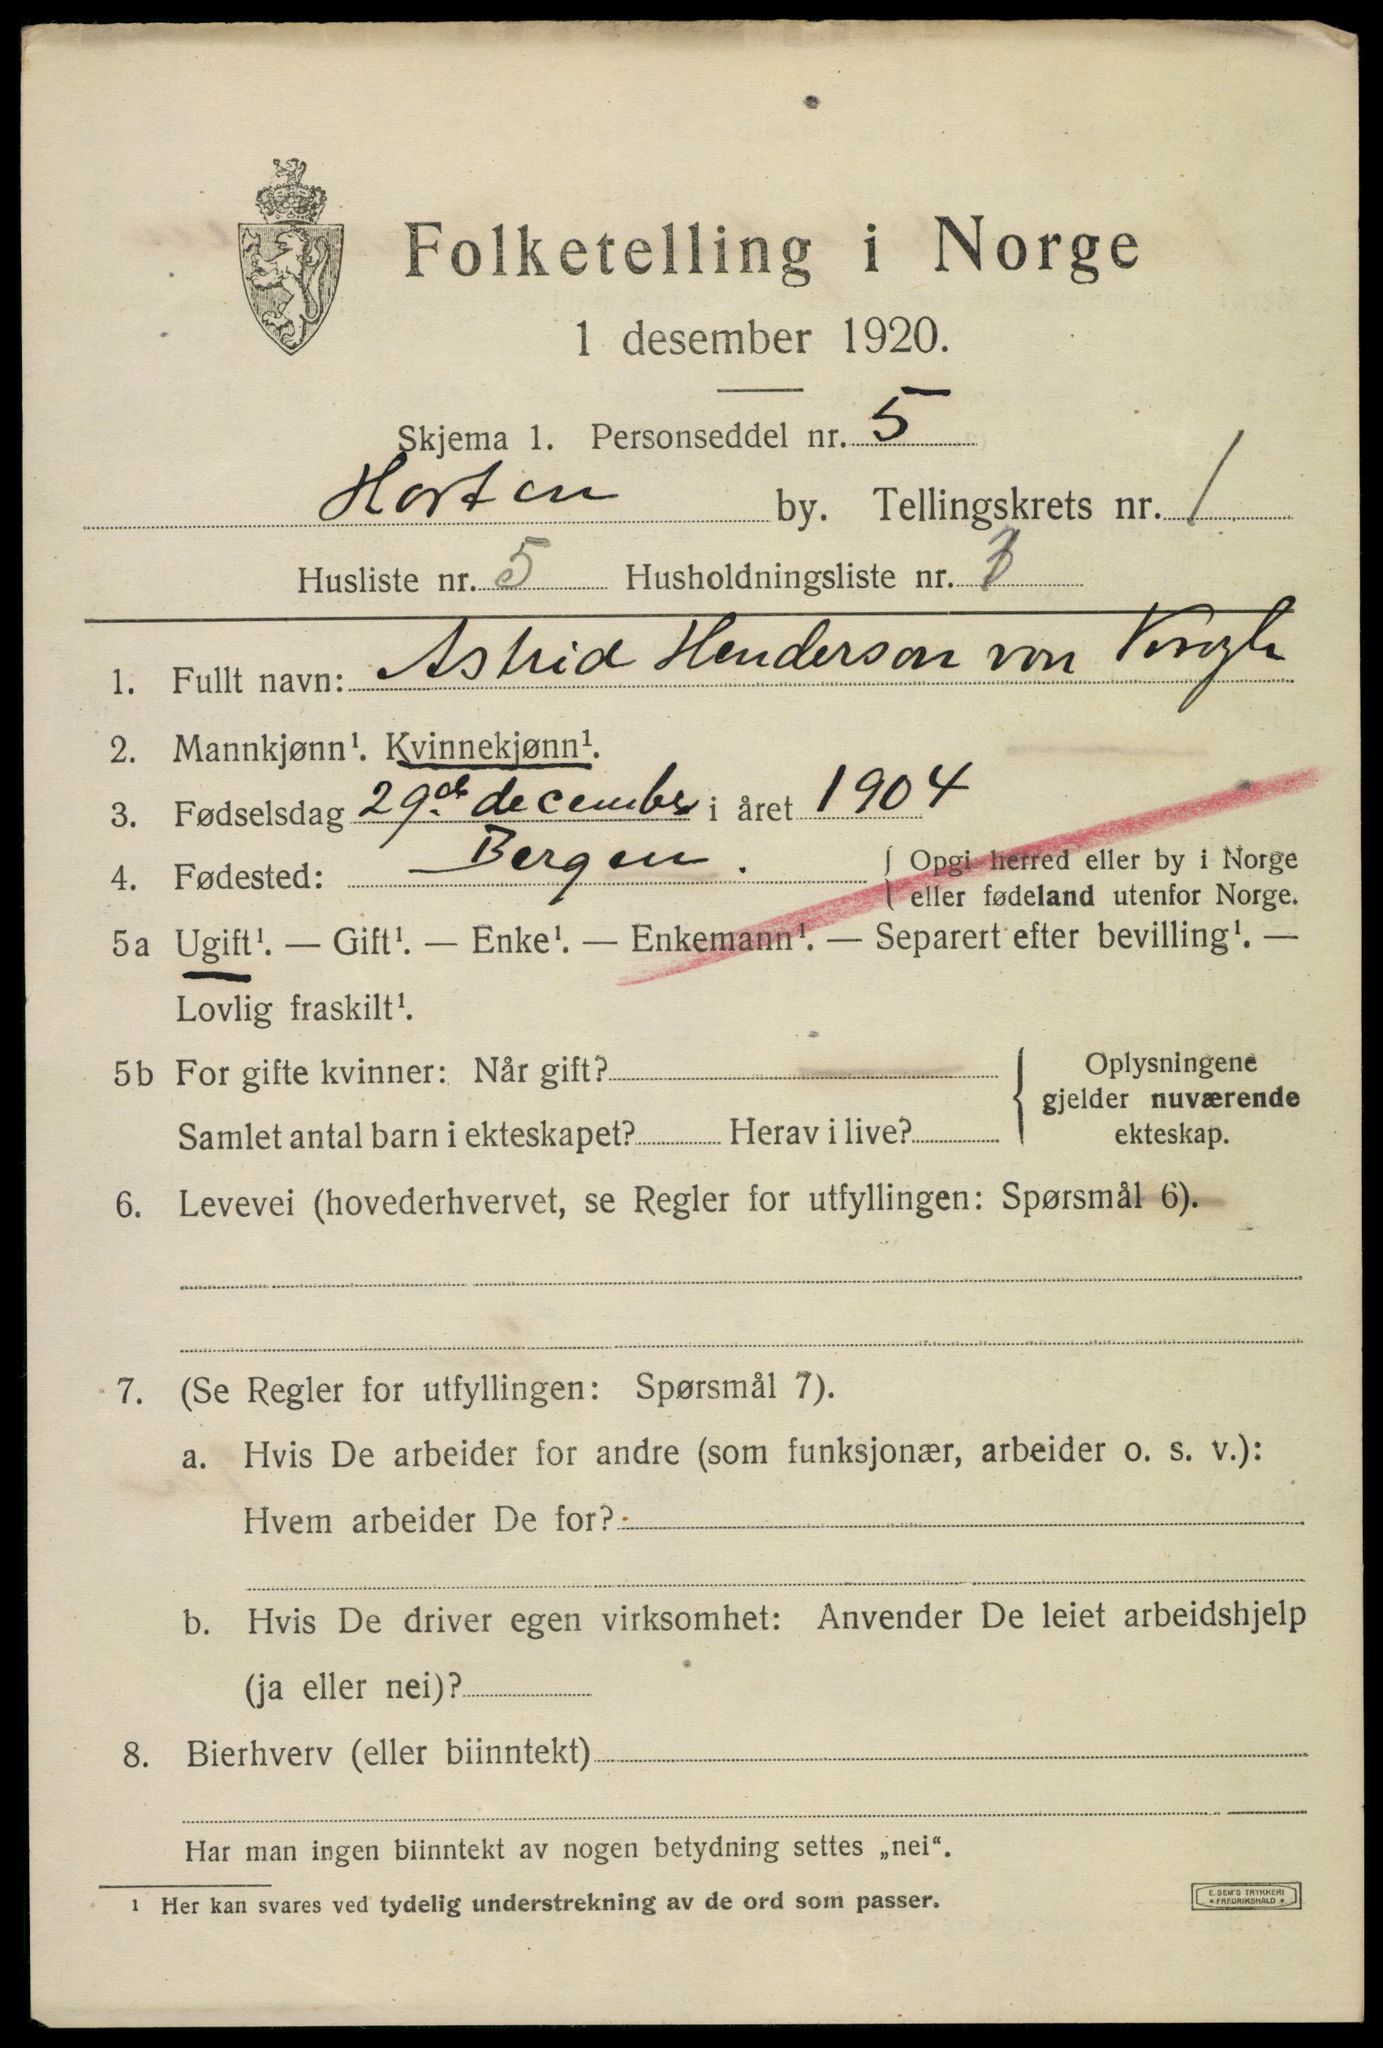 Folketelling i Norge
1 desember 1920.
Skjema 1. Personseddel nr. 5
Horten by. Tellingskrets nr. 1
Husliste nr. 5 Husholdningsliste nr.
1. Fullt navn: Astrid Henderson von
2. Mannkjønn¹. Kvinnekjønn¹.
3. Fødselsdag 29de december i året 1904
4. Fødested: Bergen. { Opgi herred eller by i Norge
eller fødeland utenfor Norge.
5a Ugift¹. — Gift¹. — Enke¹. — Enkemann¹. — Separert efter bevilling¹. —
Lovlig fraskilt¹.
5b For gifte kvinner: Når gift? { Oplysningene
gjelder nuværende
Samlet antal barn i ekteskapet? Herav i live? ekteskap.
6. Levevei (hovederhvervet, se Regler for utfyllingen: Spørsmål 6).
7. (Se Regler for utfyllingen: Spørsmål 7).
a. Hvis De arbeider for andre (som funksjonær, arbeider o. s. v.):
Hvem arbeider De for?
b. Hvis De driver egen virksomhet: Anvender De leiet arbeidshjelp
(ja eller nei)?
8. Bierhverv (eller biinntekt)
Har man ingen biinntekt av nogen betydning settes „nei“.
¹ Her kan svares ved tydelig understrekning av de ord som passer.
E. SEM'S TRYKKERI
FREDRIKSHALD